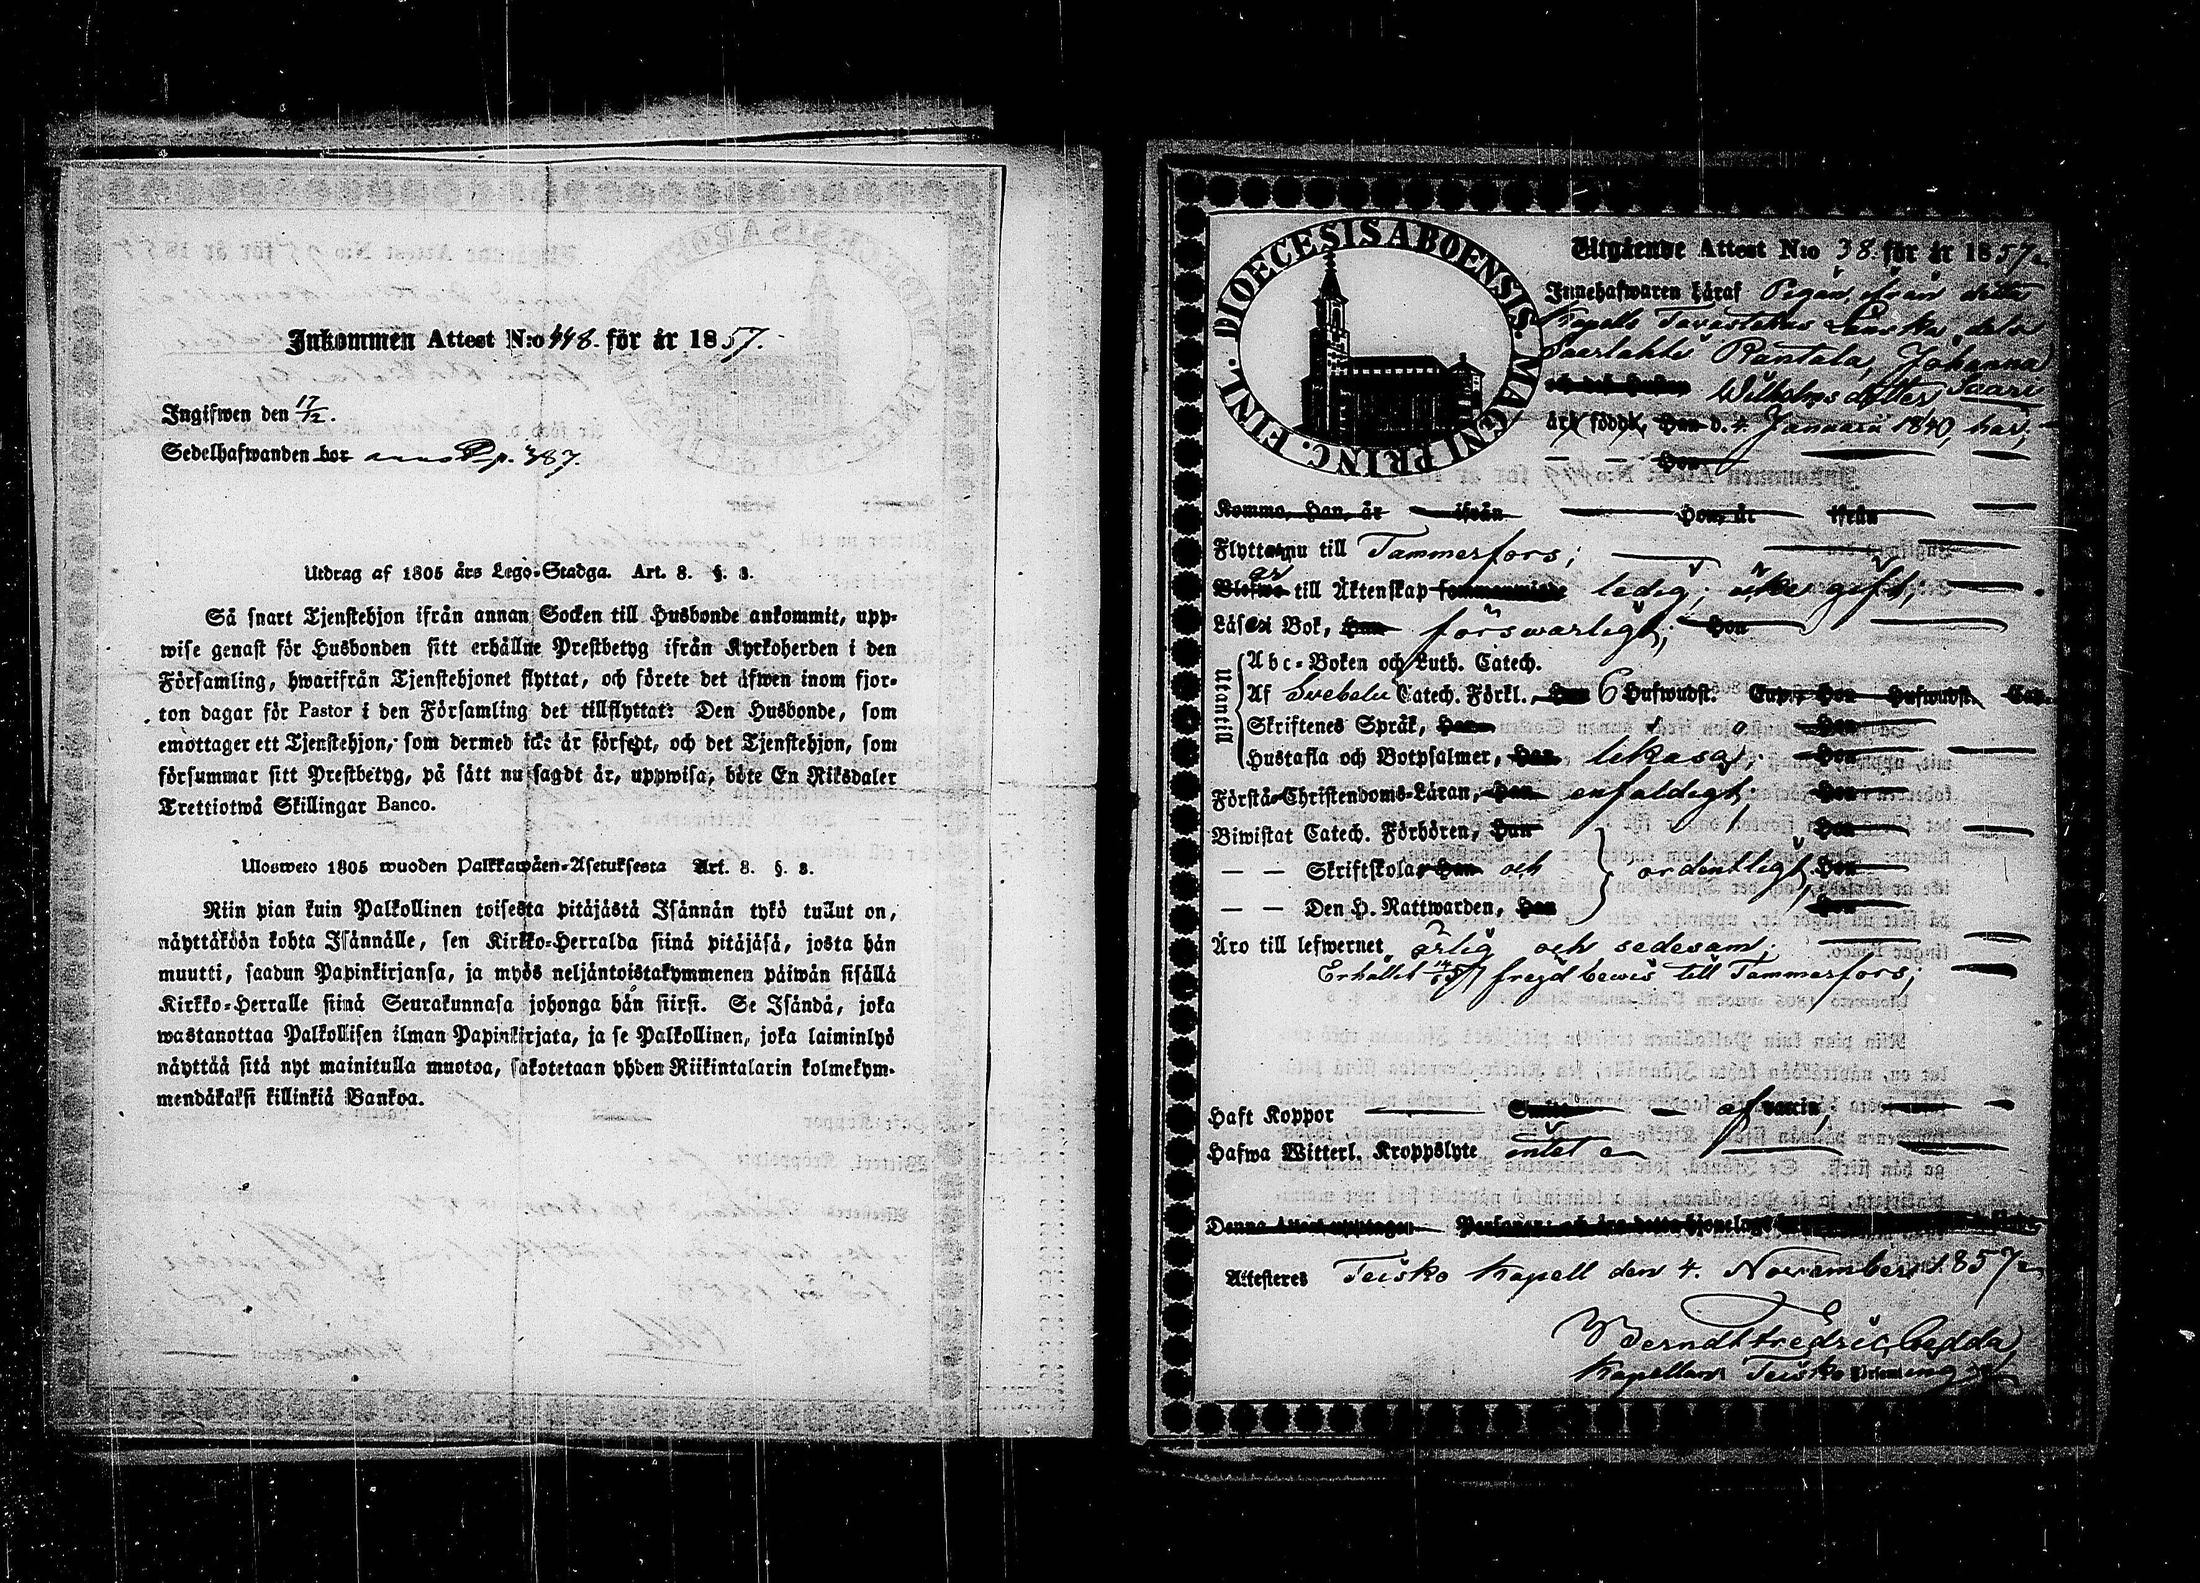 Inkommen Attest N:o 448. för år 1857.
Ingifwen den 17/12.
Sedelhafwanden bor p. 387.
Utdrag af 1805 års Lego-Stadga. Art. 8. §. 8.
Så snart Tjenstehjon ifrån annan Socken till Husbonde ankommit, upp-
wise genast för Husbonden sitt erhållne Prestbetyg ifrån Kyrkoherden i den
Församling, hwarifrån Tjenstehjonet flyttat, och förete det äfwen inom fjor-
ton dagar för Pastor i den Församling det tillflyttat: Den Husbonde, som
emottager ett Tjenstehjon, som dermed icke är försedt, och det Tjenstehjon, som
försummar sitt Prestbetyg, på sätt nu sagdt är, uppwisa, böte En Riksdaler
Trettiotwå Skillingar Banco.
Ulosweto 1805 wuoden Palkkawäen-Asetuksesta Art. 8. §. 8.
Niin pian kuin Palkollinen toisesta pitäjästä Isännän tykö tullut on,
näyttäköön kohta Isännälle, sen Kirkko-Herralda siinä pitäjäsä, josta hän
muutti, saadun Papinkirjansa, ja myös neljäntoistakymmenen päiwän sisällä
Kirkko-Herralle siinä Seurakunnasa johonga hän siirsi. Se Isändä, joka
wastanottaa Palkollisen ilman Papinkirjata, ja se Palkollinen, joka laiminlyö
näyttää sitä nyt mainitulla muotoa, sakotetaan yhden Riikintalarin kolmekym-
mendäkaksi killinkiä Bankoa.
DIOECESIS ABOENSIS. MAGNI PRINC. FINL.
Utgående Attest N:o 38. för år 1857
Innehafwaren häraf Pigan ifrån detta
Kapell Tavastehus Läns
Paarlahti Rantala, Johanna
Wilhelmsdotter Saari
är född, Han d. 4. Januari 1840, har,
Hon
Komma, Han, är ifrån Hon, är ifrån
Flyttar nu till Tammerfors;
till Äktenskap ledig, icke gift;
Läser i Bok, Han förswarligt; Hon
Utantill
Abc-Boken och Luth. Catech.
Af Svebelii Catech. Förkl., Han 6 Hufwudst. Cap., Hon Hufwudst. Cap.
Skriftenes Språk, Han Hon
Hustafla och Botpsalmer, Han likaså; Hon
Förstå Christendoms-Läran, Han enfaldigt; Hon
Biwistat Catech. Förhören, Han Hon
— — Skriftskolar Han och ordentligt, Hon
— — Den H. Nattwarden, Han Hon
Äro till lefwernet ärlig och sedesam;
Erhållit frejdbewis till Tammerfors;
Haft Koppor af vaccin;
Hafwa Witterl. Kroppslyte intet
Denna Attest upptager Personer
Attesteres Teisko Kapell den 4. November 1857
Berndt Fredric Gedda
Kapellan i Teisko Församling